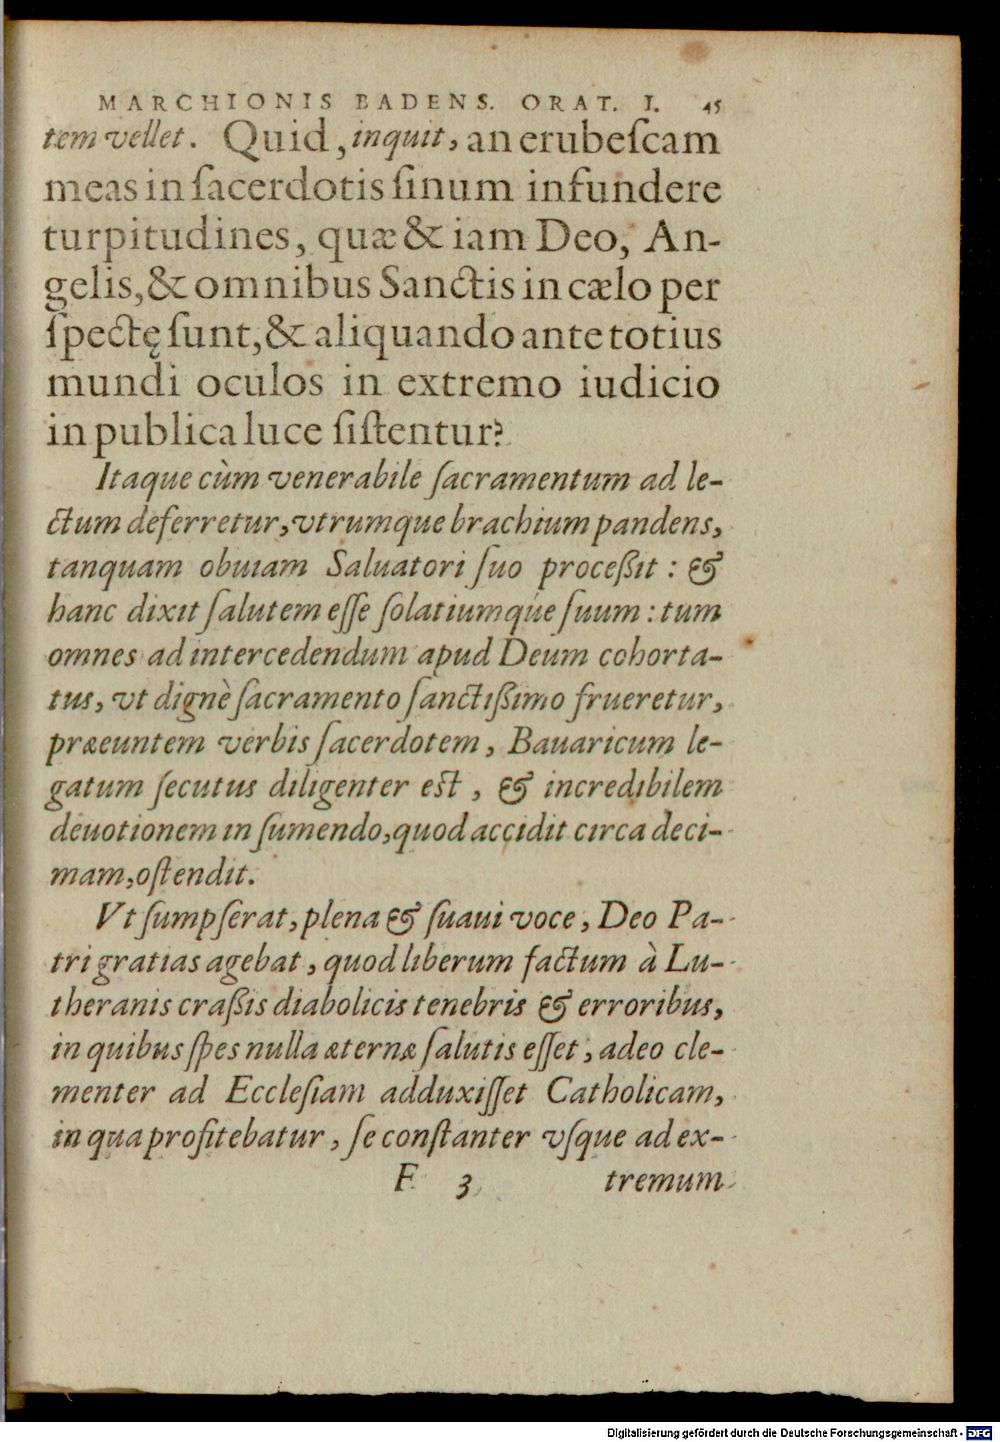 MARCHIONIS BADENS. ORAT. I. 45
tem vellet. Quid, inquit, an erubeſcam
meas in ſacerdotis ſinum infundere
turpitudines, quæ & iam Deo, An-
gelis, & omnibus Sanctis in cælo per
ſpectę ſunt, & aliquando ante totius
mundi oculos in extremo iudicio
in publica luce ſiſtentur?
Itaque cùm venerabile ſacramentum ad le-
ctum deferretur, vtrumque brachium pandens,
tanquam obuiam Saluatori ſuo proceßit: &
hanc dixit ſalutem eſſe ſolatiumq́ue ſuum: tum
omnes ad intercedendum apud Deum cohorta-
tus, vt dignè ſacramento ſanctißimo frueretur,
præeuntem verbis ſacerdotem, Bauaricum le-
gatum ſecutus diligenter est, & incredibilem
deuotionem in ſumendo, quod accidit circa deci-
mam, oſtendit.
Vt ſumpſerat, plena & ſuaui voce, Deo Pa-
tri gratias agebat, quod liberum factum à Lu-
theranis craßis diabolicis tenebris & erroribus,
in quibus ſpes nulla æternæ ſalutis eſſet, adeo cle-
menter ad Eccleſiam adduxiſſet Catholicam,
in qua profitebatur, ſe conſtanter vſque ad ex-
F 3 tremum
Digitalisierung gefördert durch die Deutsche Forschungsgemeinschaft - DFG